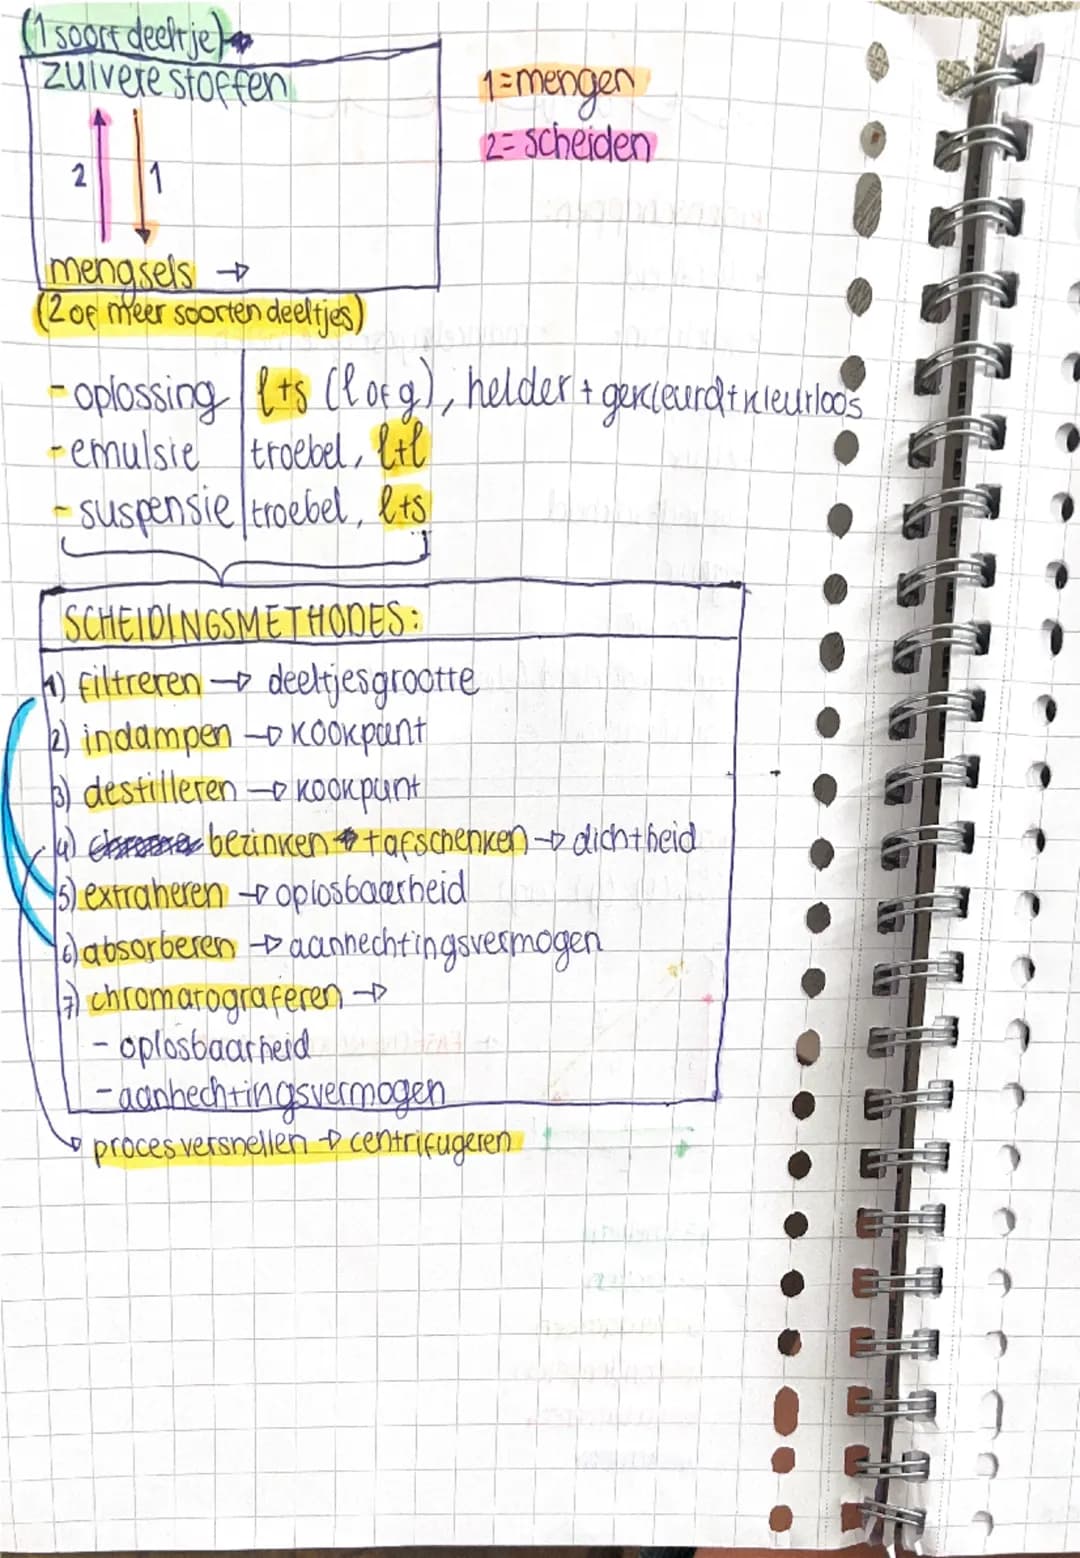 (1 soort deeltje)
zuivere stoffen
1=mengen
2= scheiden
2 1
mengsels →
(2 of meer soorten deeltjes)
- oplossing | l+s (l of g), helder + gekleurd + kleurloos
- emulsie | troebel, l+l
- suspensie | troebel, l+s
SCHEIDINGSMETHODES:
1) filtreren → deeltjesgrootte
2) indampen → kookpunt
3) destilleren → kookpunt
4) bezinken + afschenken → dichtheid
5) extraheren → oplosbaarheid
6) absorberen → aanhechtingsvermogen
7) chromatograferen →
- oplosbaarheid
- aanhechtingsvermogen
proces versnellen → centrifugeren